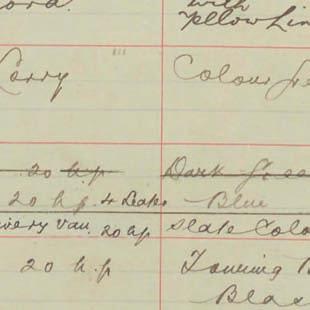 with
Yellow Lin
Lorry Colour Gre
20 h.p Dark Gree
20 h.p. 4 Seats Blue
ivery Van. 20 hp Slate Colo
20 h.p Touring B
Blac